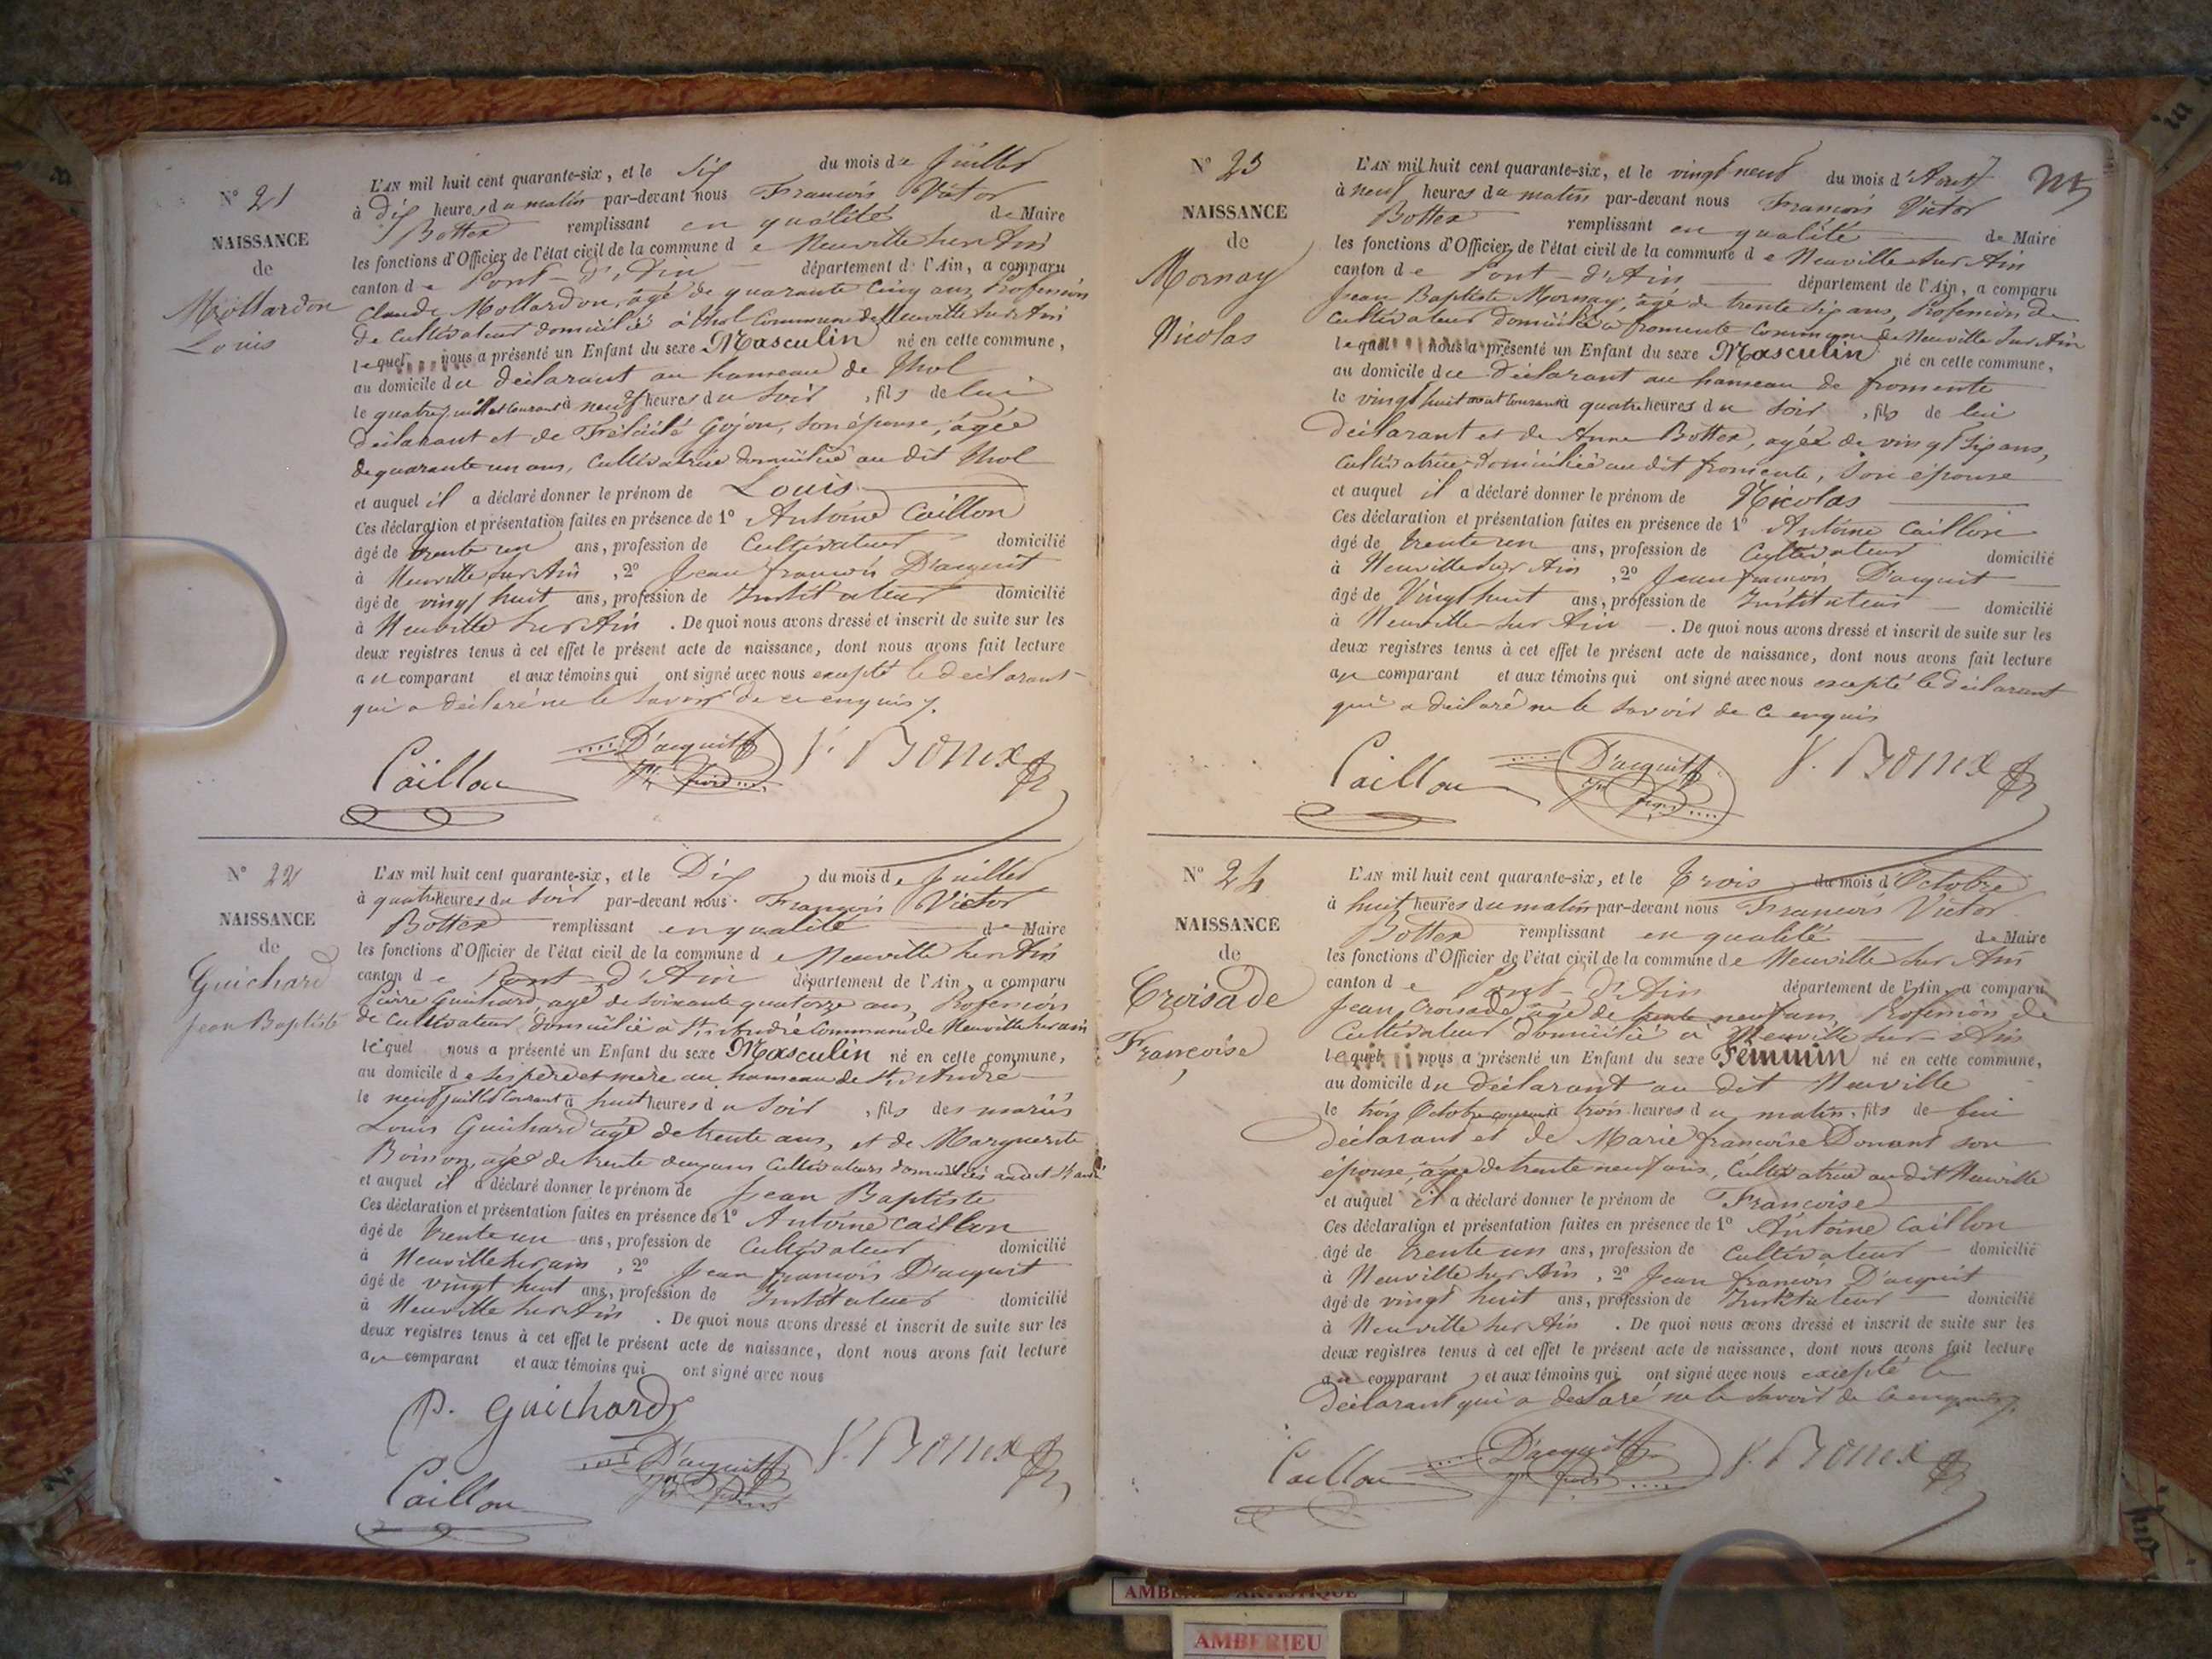 N° 21
NAISSANCE
de
Mollardon
Louis
L'AN mil huit cent quarante-six, et le Six du mois de Juillet
à Dix heures du matin par-devant nous François Victor
Bottex remplissant en qualité de Maire
les fonctions d'Officier de l'état civil de la commune de Neuville sur Ain
canton de Pont-d'Ain département de l'Ain, a comparu
Claude Mollardon, âgé de quarante cinq ans, Profession
de Cultivateur domicilié à Thol Commune de Neuville sur Ain
lequel nous a présenté un Enfant du sexe Masculin né en cette commune,
au domicile du déclarant au hameau de Thol
le quatre juillet courant à neuf heures du soir, fils de lui
déclarant et de Félicité Gojon, son épouse, âgée
de quarante un ans, Cultivatrice domiciliée au dit Thol
et auquel il a déclaré donner le prénom de Louis
Ces déclaration et présentation faites en présence de 1° Antoine Caillon
âgé de trente un ans, profession de Cultivateur domicilié
à Neuville sur Ain, 2° Jean françois D'acquit
âgé de vingt huit ans, profession de Instituteur domicilié
à Neuville sur Ain. De quoi nous avons dressé et inscrit de suite sur les
deux registres tenus à cet effet le présent acte de naissance, dont nous avons fait lecture
au comparant et aux témoins qui ont signé avec nous excepté le déclarant
qui a déclaré ne le savoir de ce enquis
Caillon D'acquit V. Bottex
N° 22
NAISSANCE
de
Guichard
Jean Baptiste
L'AN mil huit cent quarante-six, et le Dix du mois de Juillet
à quatre heures du soir par-devant nous François Victor
Bottex remplissant en qualité de Maire
les fonctions d'Officier de l'état civil de la commune de Neuville sur Ain
canton de Pont-d'Ain département de l'Ain, a comparu
Pierre Guichard, âgé de soixante quatorze ans, Profession
de Cultivateur domicilié à St André Commune de Neuville sur ain
lequel nous a présenté un Enfant du sexe Masculin né en cette commune,
au domicile de ses père et mère au hameau de St André
le neuf juillet courant à huit heures du soir, fils des mariés
Louis Guichard âgé de trente ans, et de Marguerite
Boisson, âgée de trente deux ans Cultivateurs domiciliés au dit St andré
et auquel il a déclaré donner le prénom de Jean Baptiste
Ces déclaration et présentation faites en présence de 1° Antoine Caillon
âgé de trente un ans, profession de Cultivateur domicilié
à Neuville sur ain, 2° Jean françois D'acquit
âgé de vingt huit ans, profession de Instituteur domicilié
à Neuville sur Ain. De quoi nous avons dressé et inscrit de suite sur les
deux registres tenus à cet effet le présent acte de naissance, dont nous avons fait lecture
au comparant et aux témoins qui ont signé avec nous
P. Guichard
Caillon D'acquit V. Bottex
N° 23
NAISSANCE
de
Mornay
Nicolas
L'AN mil huit cent quarante-six, et le vingt neuf du mois d'Aout
à neuf heures du matin par-devant nous François Victor
Bottex remplissant en qualité de Maire
les fonctions d'Officier de l'état civil de la commune de Neuville sur Ain
canton de Pont-d'Ain département de l'Ain, a comparu
Jean Baptiste Mornay, âgé de trente six ans, Profession de
Cultivateur domicilié à fromente Commune de Neuville sur Ain
lequel nous a présenté un Enfant du sexe Masculin né en cette commune,
au domicile du déclarant au hameau de fromente
le vingt huit aout courant à quatre heures du soir, fils de lui
déclarant et de Anne Bottex, agée de vingt six ans,
Cultivatrice domiciliée au dit fromente, son épouse
et auquel il a déclaré donner le prénom de Nicolas
Ces déclaration et présentation faites en présence de 1° Antoine Caillon
âgé de trente un ans, profession de Cultivateur domicilié
à Neuville sur Ain, 2° Jean françois D'acquit
âgé de Vingt huit ans, profession de Instituteur domicilié
à Neuville sur Ain. De quoi nous avons dressé et inscrit de suite sur les
deux registres tenus à cet effet le présent acte de naissance, dont nous avons fait lecture
au comparant et aux témoins qui ont signé avec nous excepté le déclarant
qui a déclaré ne le savoir de ce enquis
Caillon D'acquit V. Bottex
N° 24
NAISSANCE
de
Croisade
Françoise
L'AN mil huit cent quarante-six, et le Trois du mois d'Octobre
à huit heures du matin par-devant nous François Victor
Bottex remplissant en qualité de Maire
les fonctions d'Officier de l'état civil de la commune de Neuville sur Ain
canton de Pont-d'Ain département de l'Ain, a comparu
Jean Croisade, âgé de trente neuf ans, Profession de
Cultivateur domicilié à Neuville sur Ain
lequel nous a présenté un Enfant du sexe Feminin né en cette commune,
au domicile du déclarant au dit Neuville
le trois Octobre courant à trois heures du matin, fils de lui
déclarant et de Marie françoise Donant son
épouse, âgée de trente neuf ans, Cultivatrice au dit Neuville
et auquel il a déclaré donner le prénom de Françoise
Ces déclaration et présentation faites en présence de 1° Antoine Caillon
âgé de trente un ans, profession de Cultivateur domicilié
à Neuville sur Ain, 2° Jean françois D'acquit
âgé de vingt huit ans, profession de Instituteur domicilié
à Neuville sur Ain. De quoi nous avons dressé et inscrit de suite sur les
deux registres tenus à cet effet le présent acte de naissance, dont nous avons fait lecture
au comparant et aux témoins qui ont signé avec nous excepté le
déclarant qui a déclaré ne le savoir de ce enquis
Caillon D'acquit V. Bottex
AMBERIEU